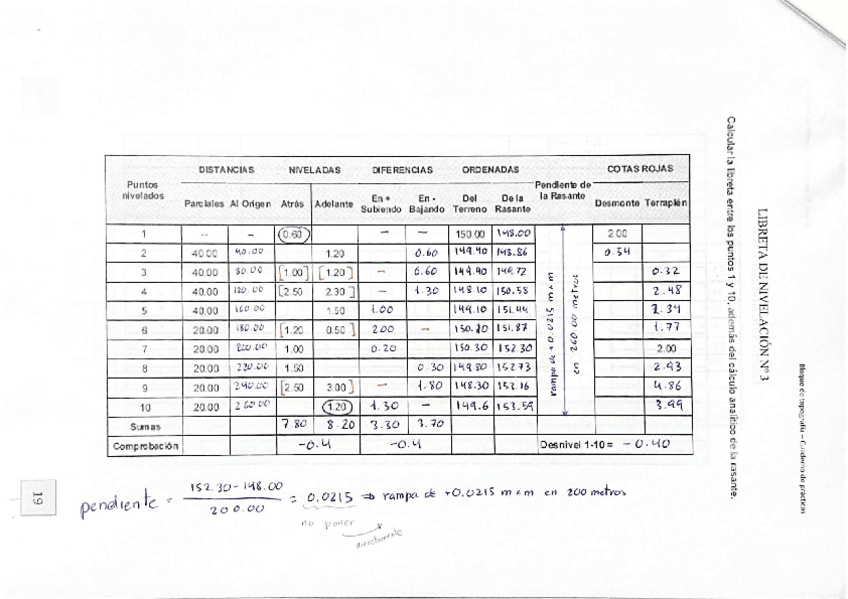 LIBRETA DE NIVELACIÓN Nº 3
Calcular la libreta entre los puntos 1 y 10, además del cálculo analítico de la rasante.
Bloque de topografía – Cuaderno de prácticas
Puntos nivelados DISTANCIAS NIVELADAS DIFERENCIAS ORDENADAS Pendiente de la Rasante COTAS ROJAS
Parciales Al Origen Atrás Adelante En + Subiendo En - Bajando Del Terreno De la Rasante Desmonte Terraplén
1 -- -- 0.60 — — 150.00 148.00 2.00
2 40.00 40.00 1.20 0.60 149.40 148.86 0.54
3 40.00 80.00 [1.00] [1.20] — 0.60 149.40 149.72 0.32
4 40.00 120.00 [2.50 2.30] — 1.30 148.10 150.58 2.48
5 40.00 160.00 1.50 1.00 149.10 151.44 2.34
6 20.00 180.00 [1.20 0.50] 2.00 — 150.10 151.87 1.77
7 20.00 200.00 1.00 0.20 150.30 152.30 2.00
8 20.00 220.00 1.50 0.30 149.80 152.73 2.93
9 20.00 240.00 [2.50 3.00] — 1.80 148.30 153.16 4.86
10 20.00 260.00 1.20 1.30 — 149.6 153.59 3.99
rampa de +0.0215 m x m
en 260.00 metros
Sumas 7.80 8.20 3.30 3.70
Comprobación -0.4 -0.4 Desnivel 1-10 = -0.40
pendiente = 152.30-148.00 / 200.00 = 0.0215 ⇒ rampa de +0.0215 m x m en 200 metros
no poner
directamente
19